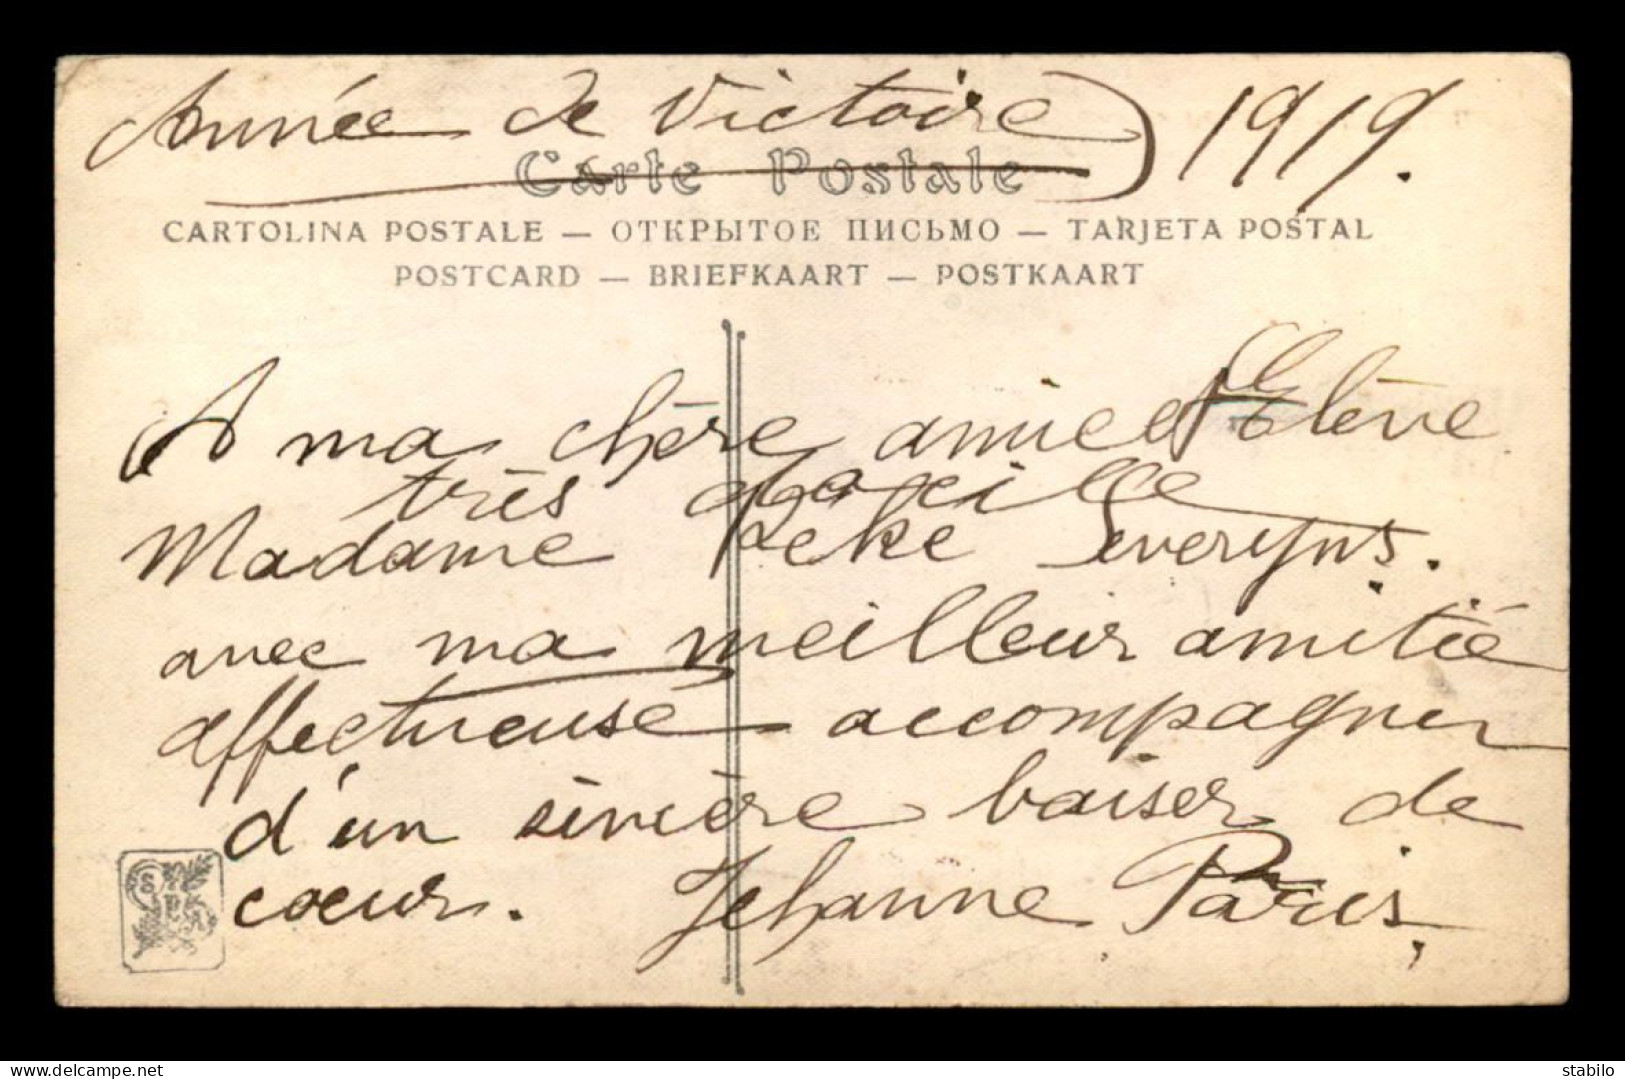 Année de Victoire) 1919.
Carte Postale
CARTOLINA POSTALE — ОТКРЫТОЕ ПИСЬМО — TARJETA POSTAL
POSTCARD — BRIEFKAART — POSTKAART
A ma chère amie et Elève
très
Madame Kéké Severyns.
avec ma meilleur amitié
affectueuse accompagner
d'un sincère baiser de
cœur. Jehanne Paris,
delcampe.net
stabilo